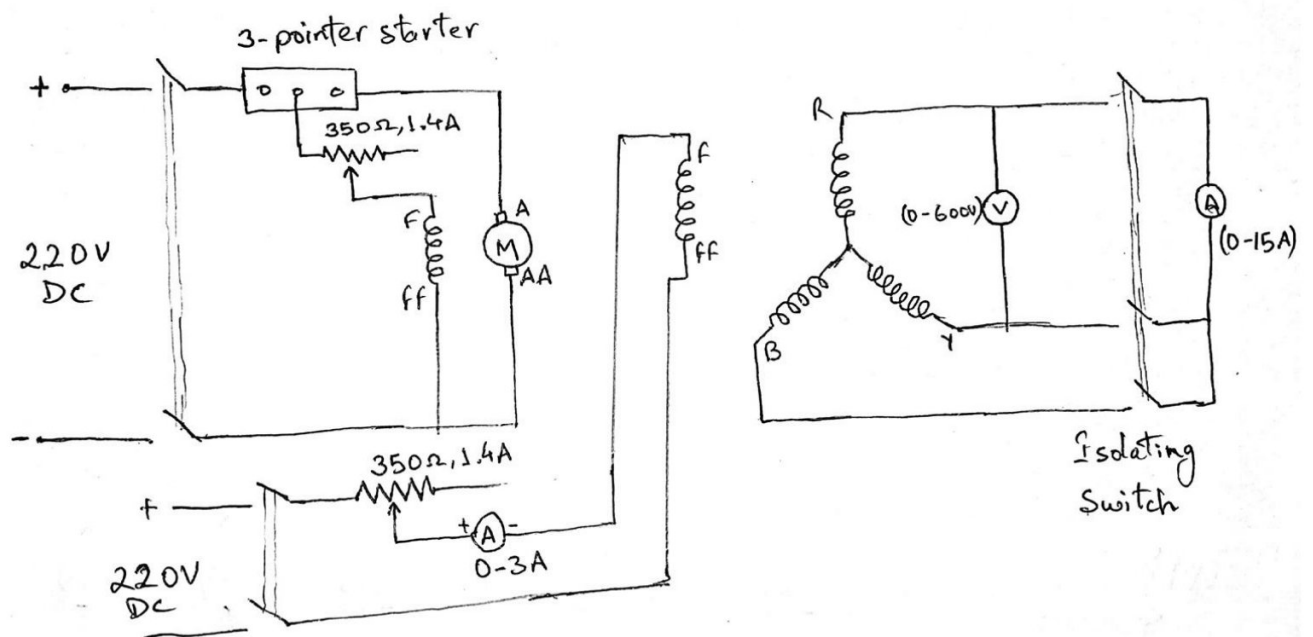 3-pointer starter
+
350Ω, 1.4A
F
ff
A
M
AA
220V
DC
-
350Ω, 1.4A
+
+ A -
0-3A
220V
DC
F
ff
R
(0-600V) V
A
(0-15A)
B
Y
Isolating
Switch